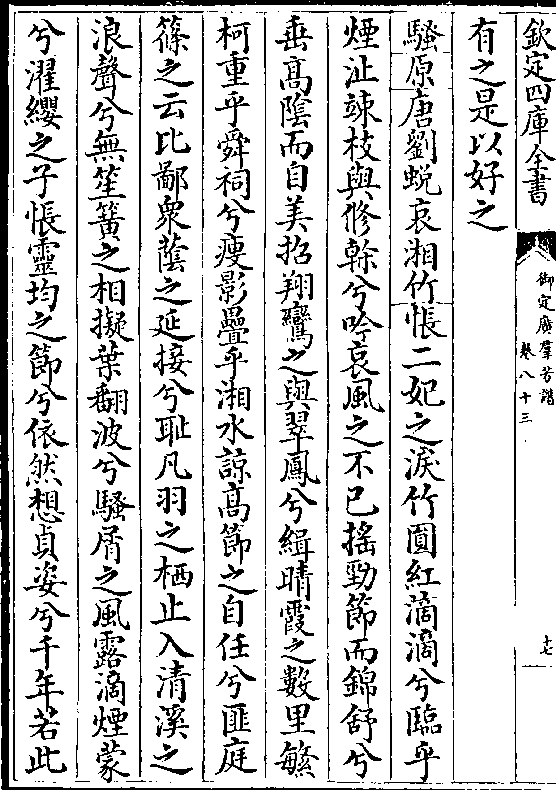 欽定四庫全書
御定廣羣芳譜
卷八十三
七
有之是以好之
騷原唐劉蛻哀湘竹悵二妃之淚竹圓紅滴滴兮臨乎
煙沚竦枝與修榦兮吟哀風之不已搖勁節而錦舒兮
垂高陰而自美招翔鸞之與翠鳳兮緝晴霞之數里繁
柯重乎舜祠兮瘦影疊乎湘水諒高節之自任兮匪庭
篠之云比鄙衆蔭之延接兮耻凡羽之栖止入清溪之
浪聲兮無笙簧之相擬葉翻波兮騷屑之風露滴煙蒙
兮濯纓之子悵靈均之節兮依然想貞姿兮千年若此